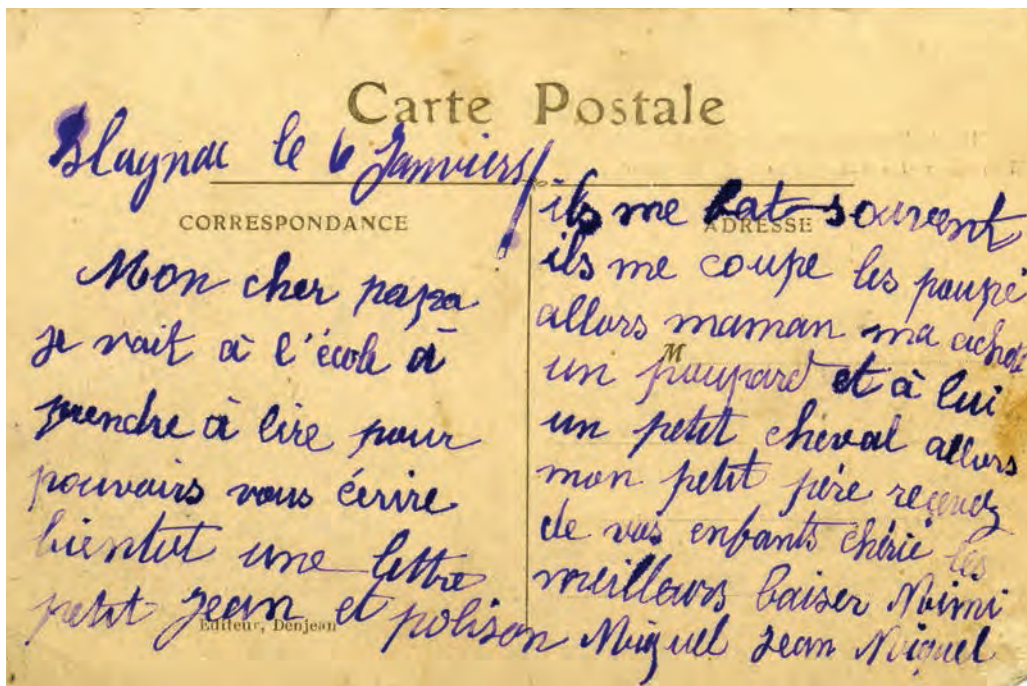 Carte Postale
Blagnac le 6 Janviers
CORRESPONDANCE
Mon cher papa
je vait à l'école a
prendre à lire pour
pouvairs vous écrire
bientot une lettre
petit Jean et polison
Editeur, Denjean
ADRESSE
ils me bat souvent
ils me coupe les poupé
allors maman ma acheté
M
un poupard et à lui
un petit cheval allors
mon petit père recevez
de vos enfants chérie les
meilleurs baiser Noimi
Miguel Jean Miquel